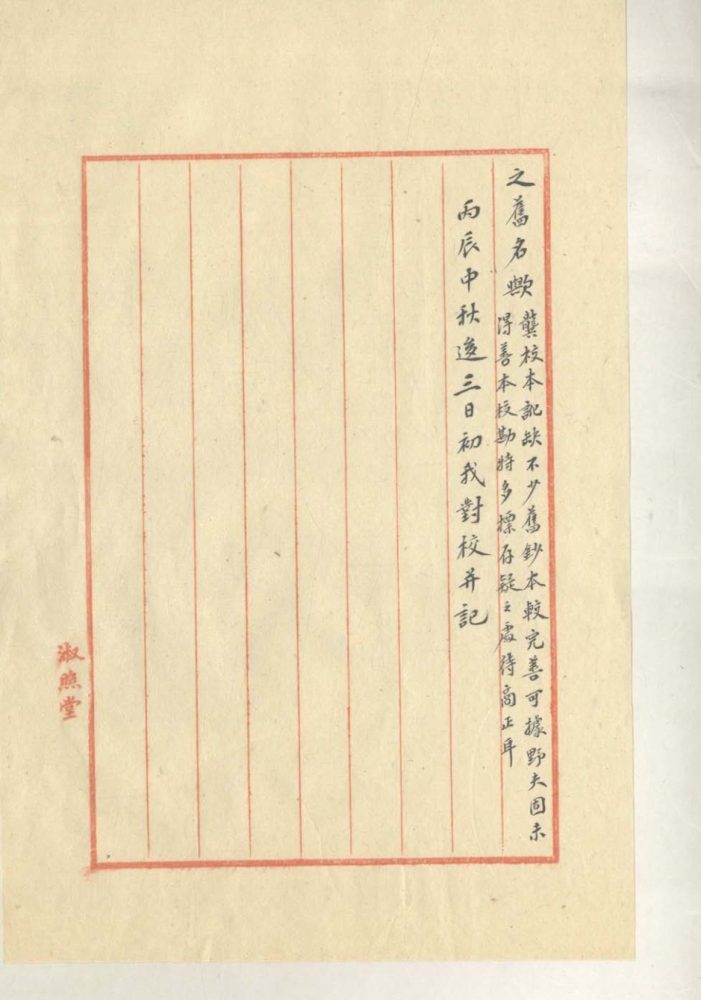 之舊名歟
龔校本訛缺不少舊鈔本較完善可據野夫固未
得善本校勘特多標存疑之處待商正耳
丙辰中秋後三日初我對校并記
淑照堂